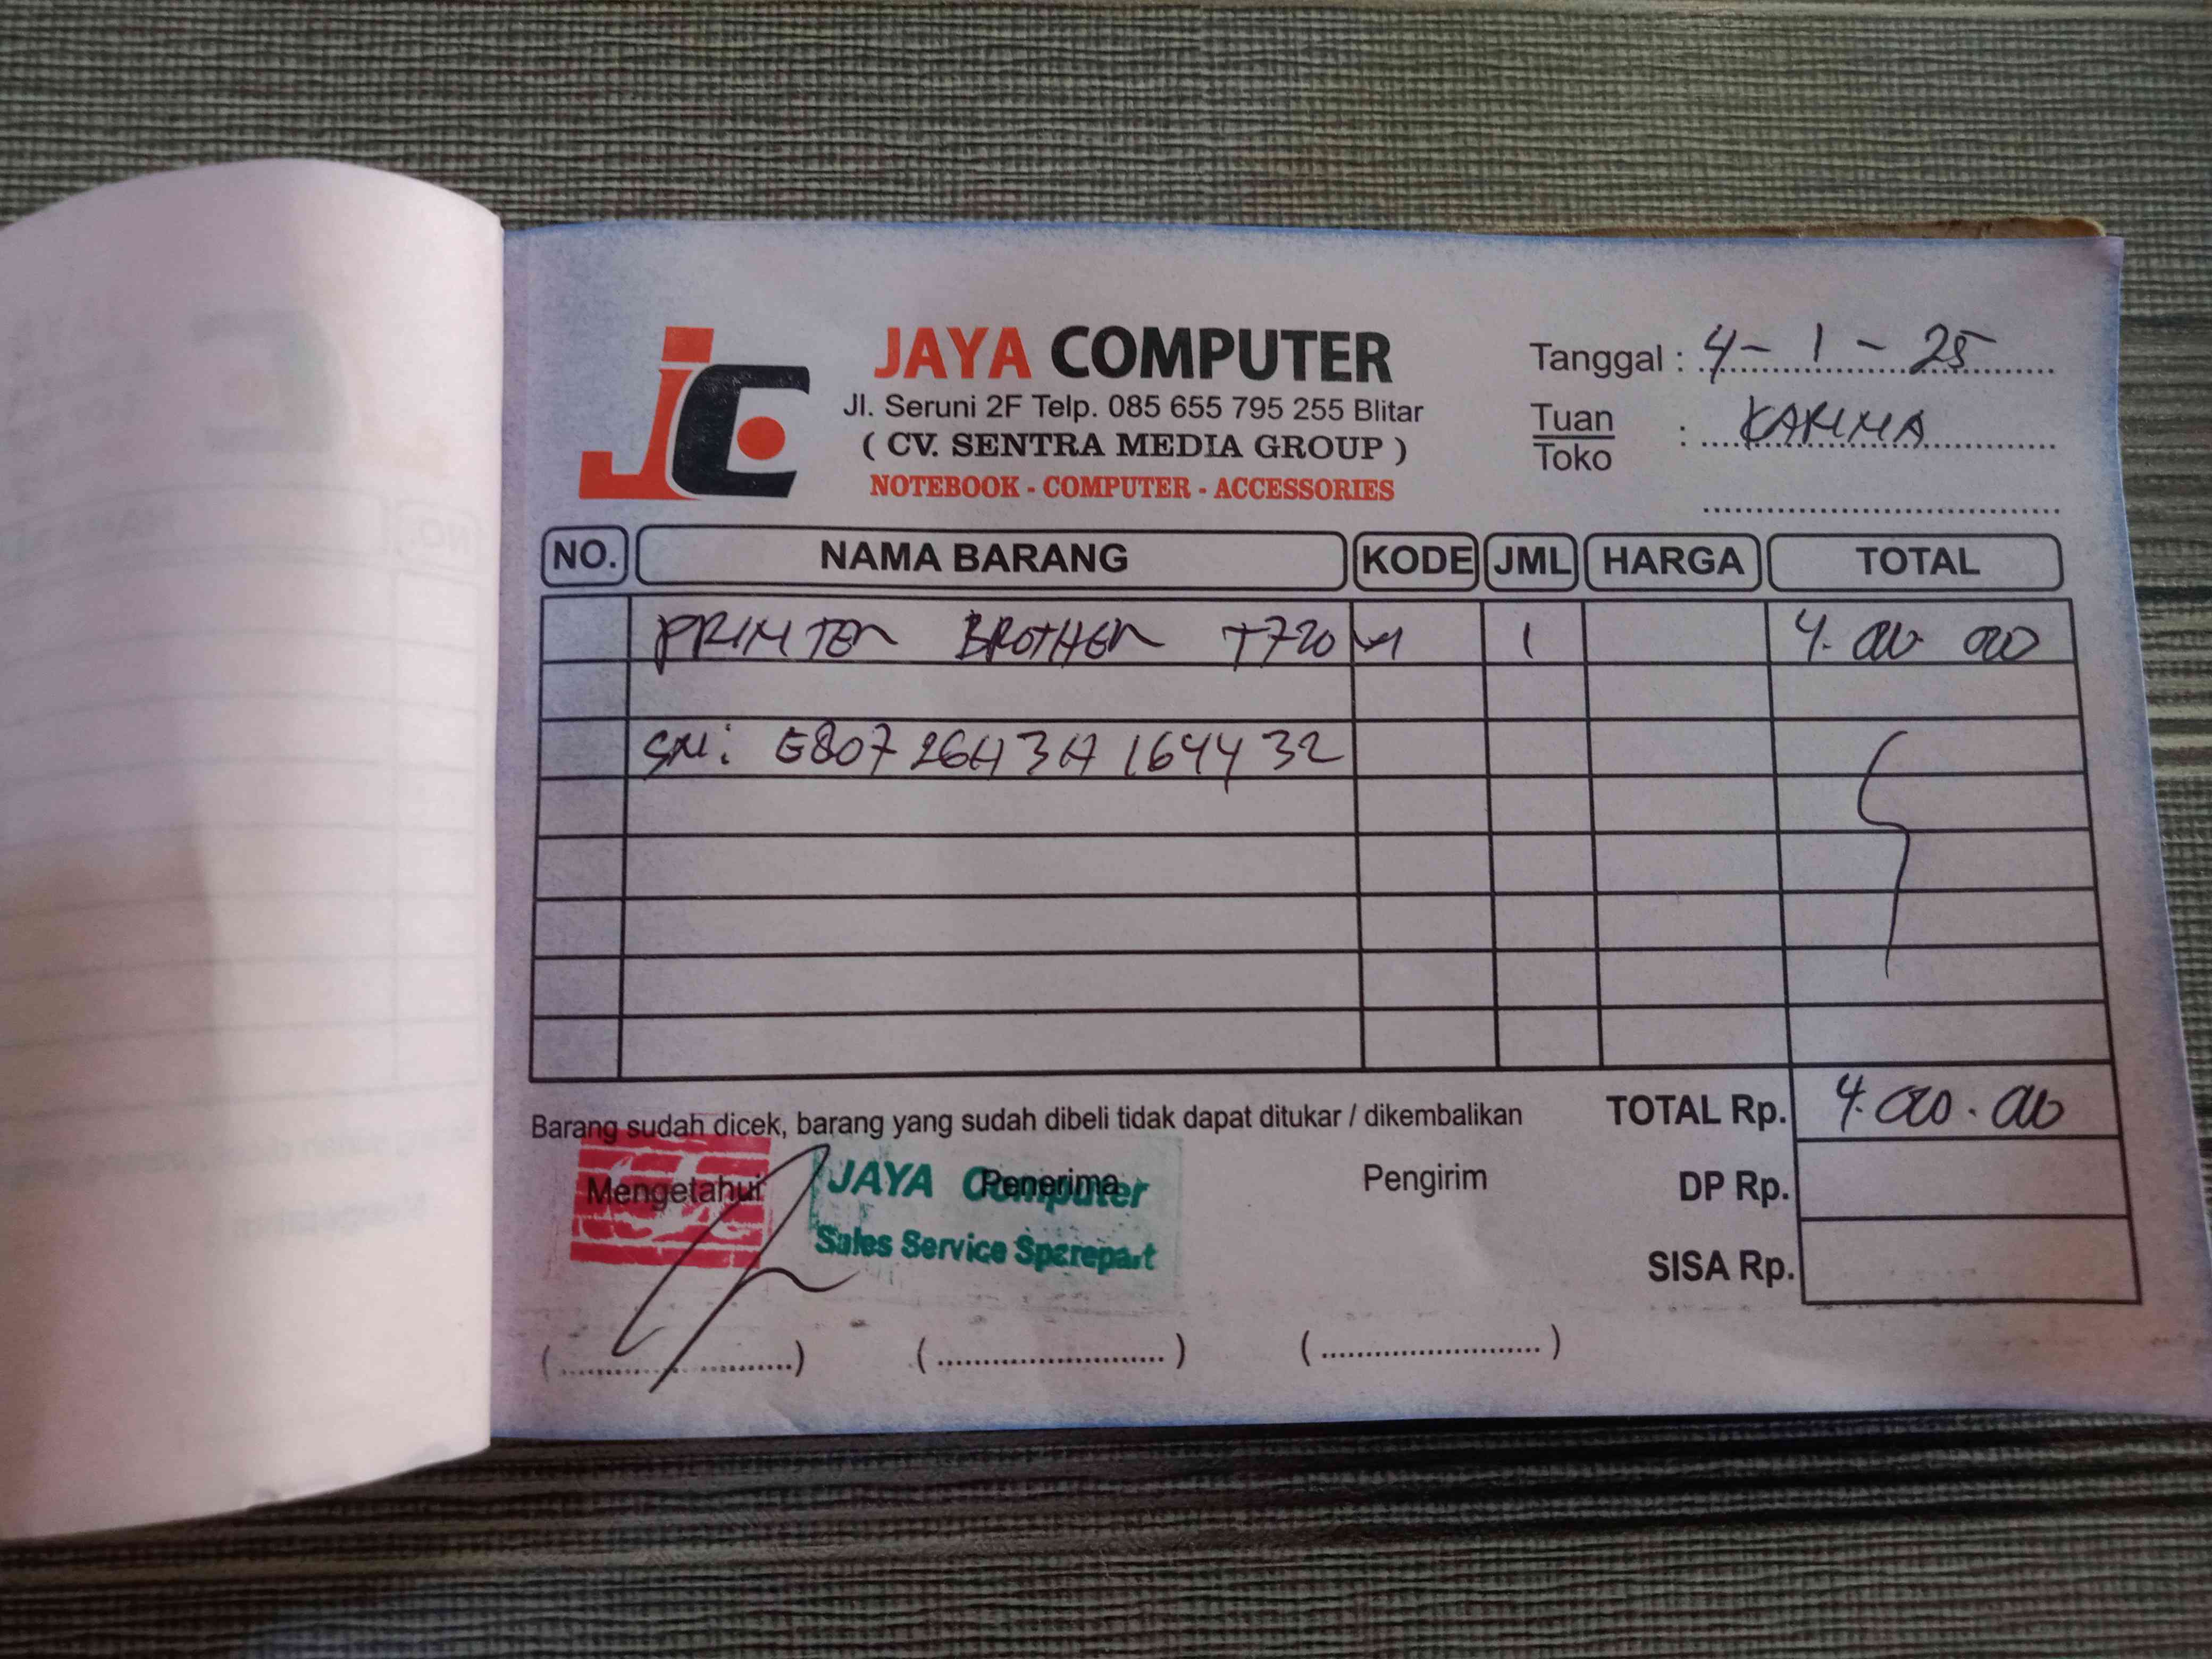 JAYA COMPUTER
Jl. Seruni 2F Telp. 085 655 795 255 Blitar
( CV. SENTRA MEDIA GROUP )
NOTEBOOK - COMPUTER - ACCESSORIES
Tanggal : 4 - 1 - 25
Tuan
Toko : KARIMA
NO. NAMA BARANG KODE JML HARGA TOTAL
PRINTER BROTHER T720 1 4.000 000
SN: E80726H3H164432
Barang sudah dicek, barang yang sudah dibeli tidak dapat ditukar / dikembalikan
TOTAL Rp. 4.000.000
Mengetahui Penerima Pengirim
JAYA Computer
Sales Service Sparepart
DP Rp.
SISA Rp.